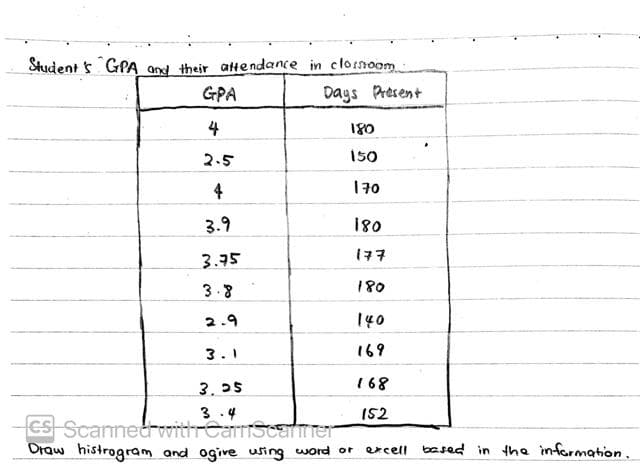 Student's GPA and their attendance in classroom.
GPA Days Present
4 180
2.5 150
4 170
3.9 180
3.75 177
3.8 180
2.9 140
3.1 169
3.25 168
3.4 152
CS Scanned with CamScanner
Draw histrogram and ogive using word or excell based in the information.